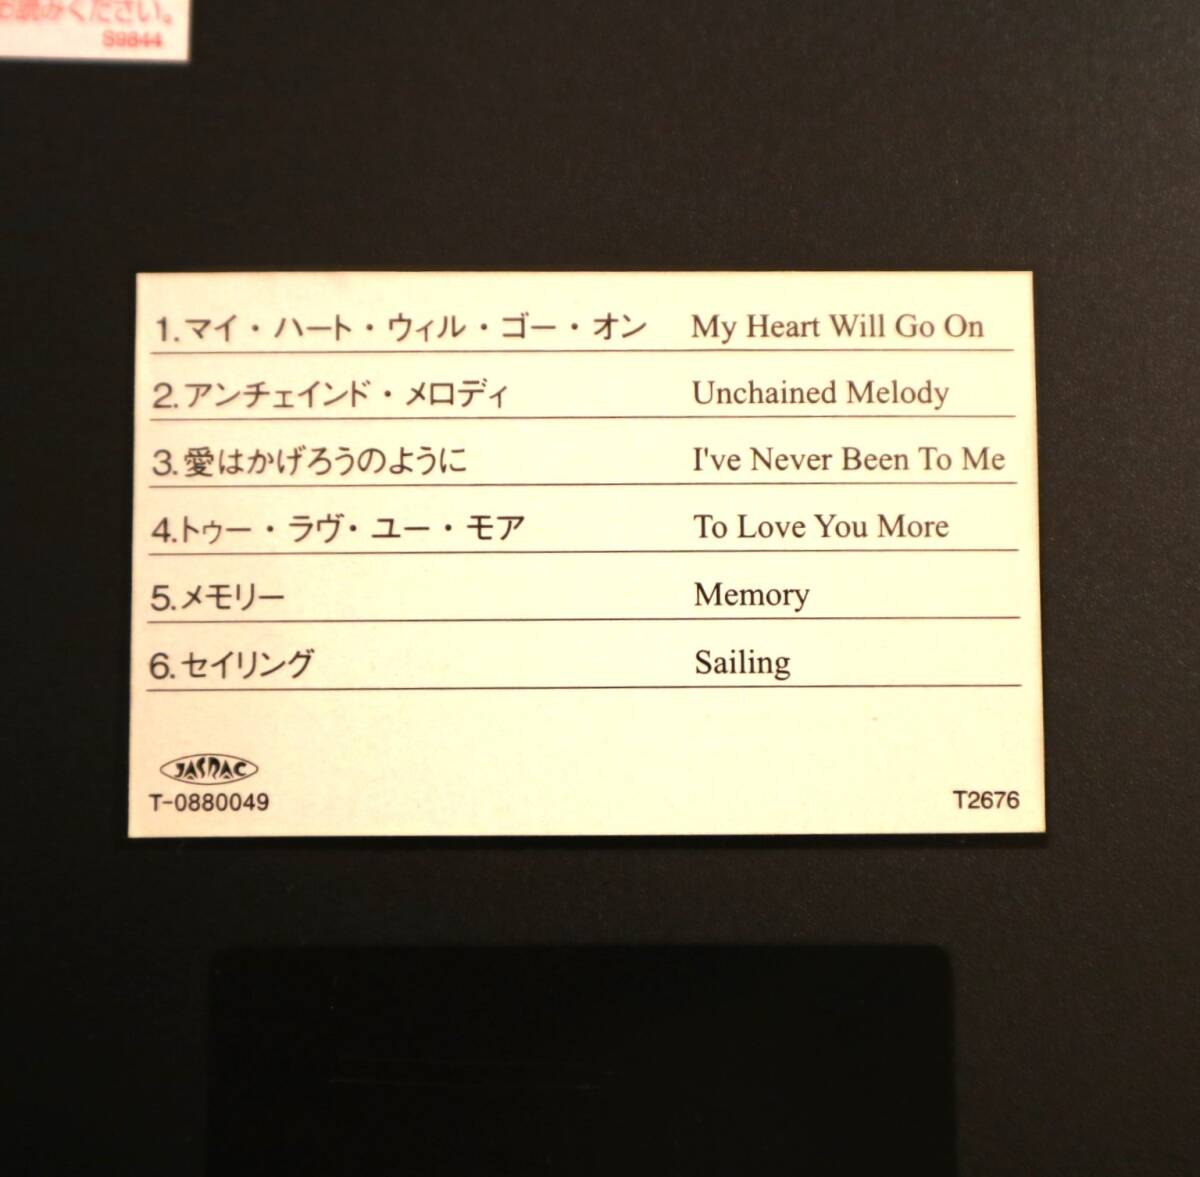 お読みください。
S9844
1.マイ・ハート・ウィル・ゴー・オン My Heart Will Go On
2.アンチェインド・メロディ Unchained Melody
3.愛はかげろうのように I've Never Been To Me
4.トゥー・ラヴ・ユー・モア To Love You More
5.メモリー Memory
6.セイリング Sailing
JASRAC
T-0880049 T2676